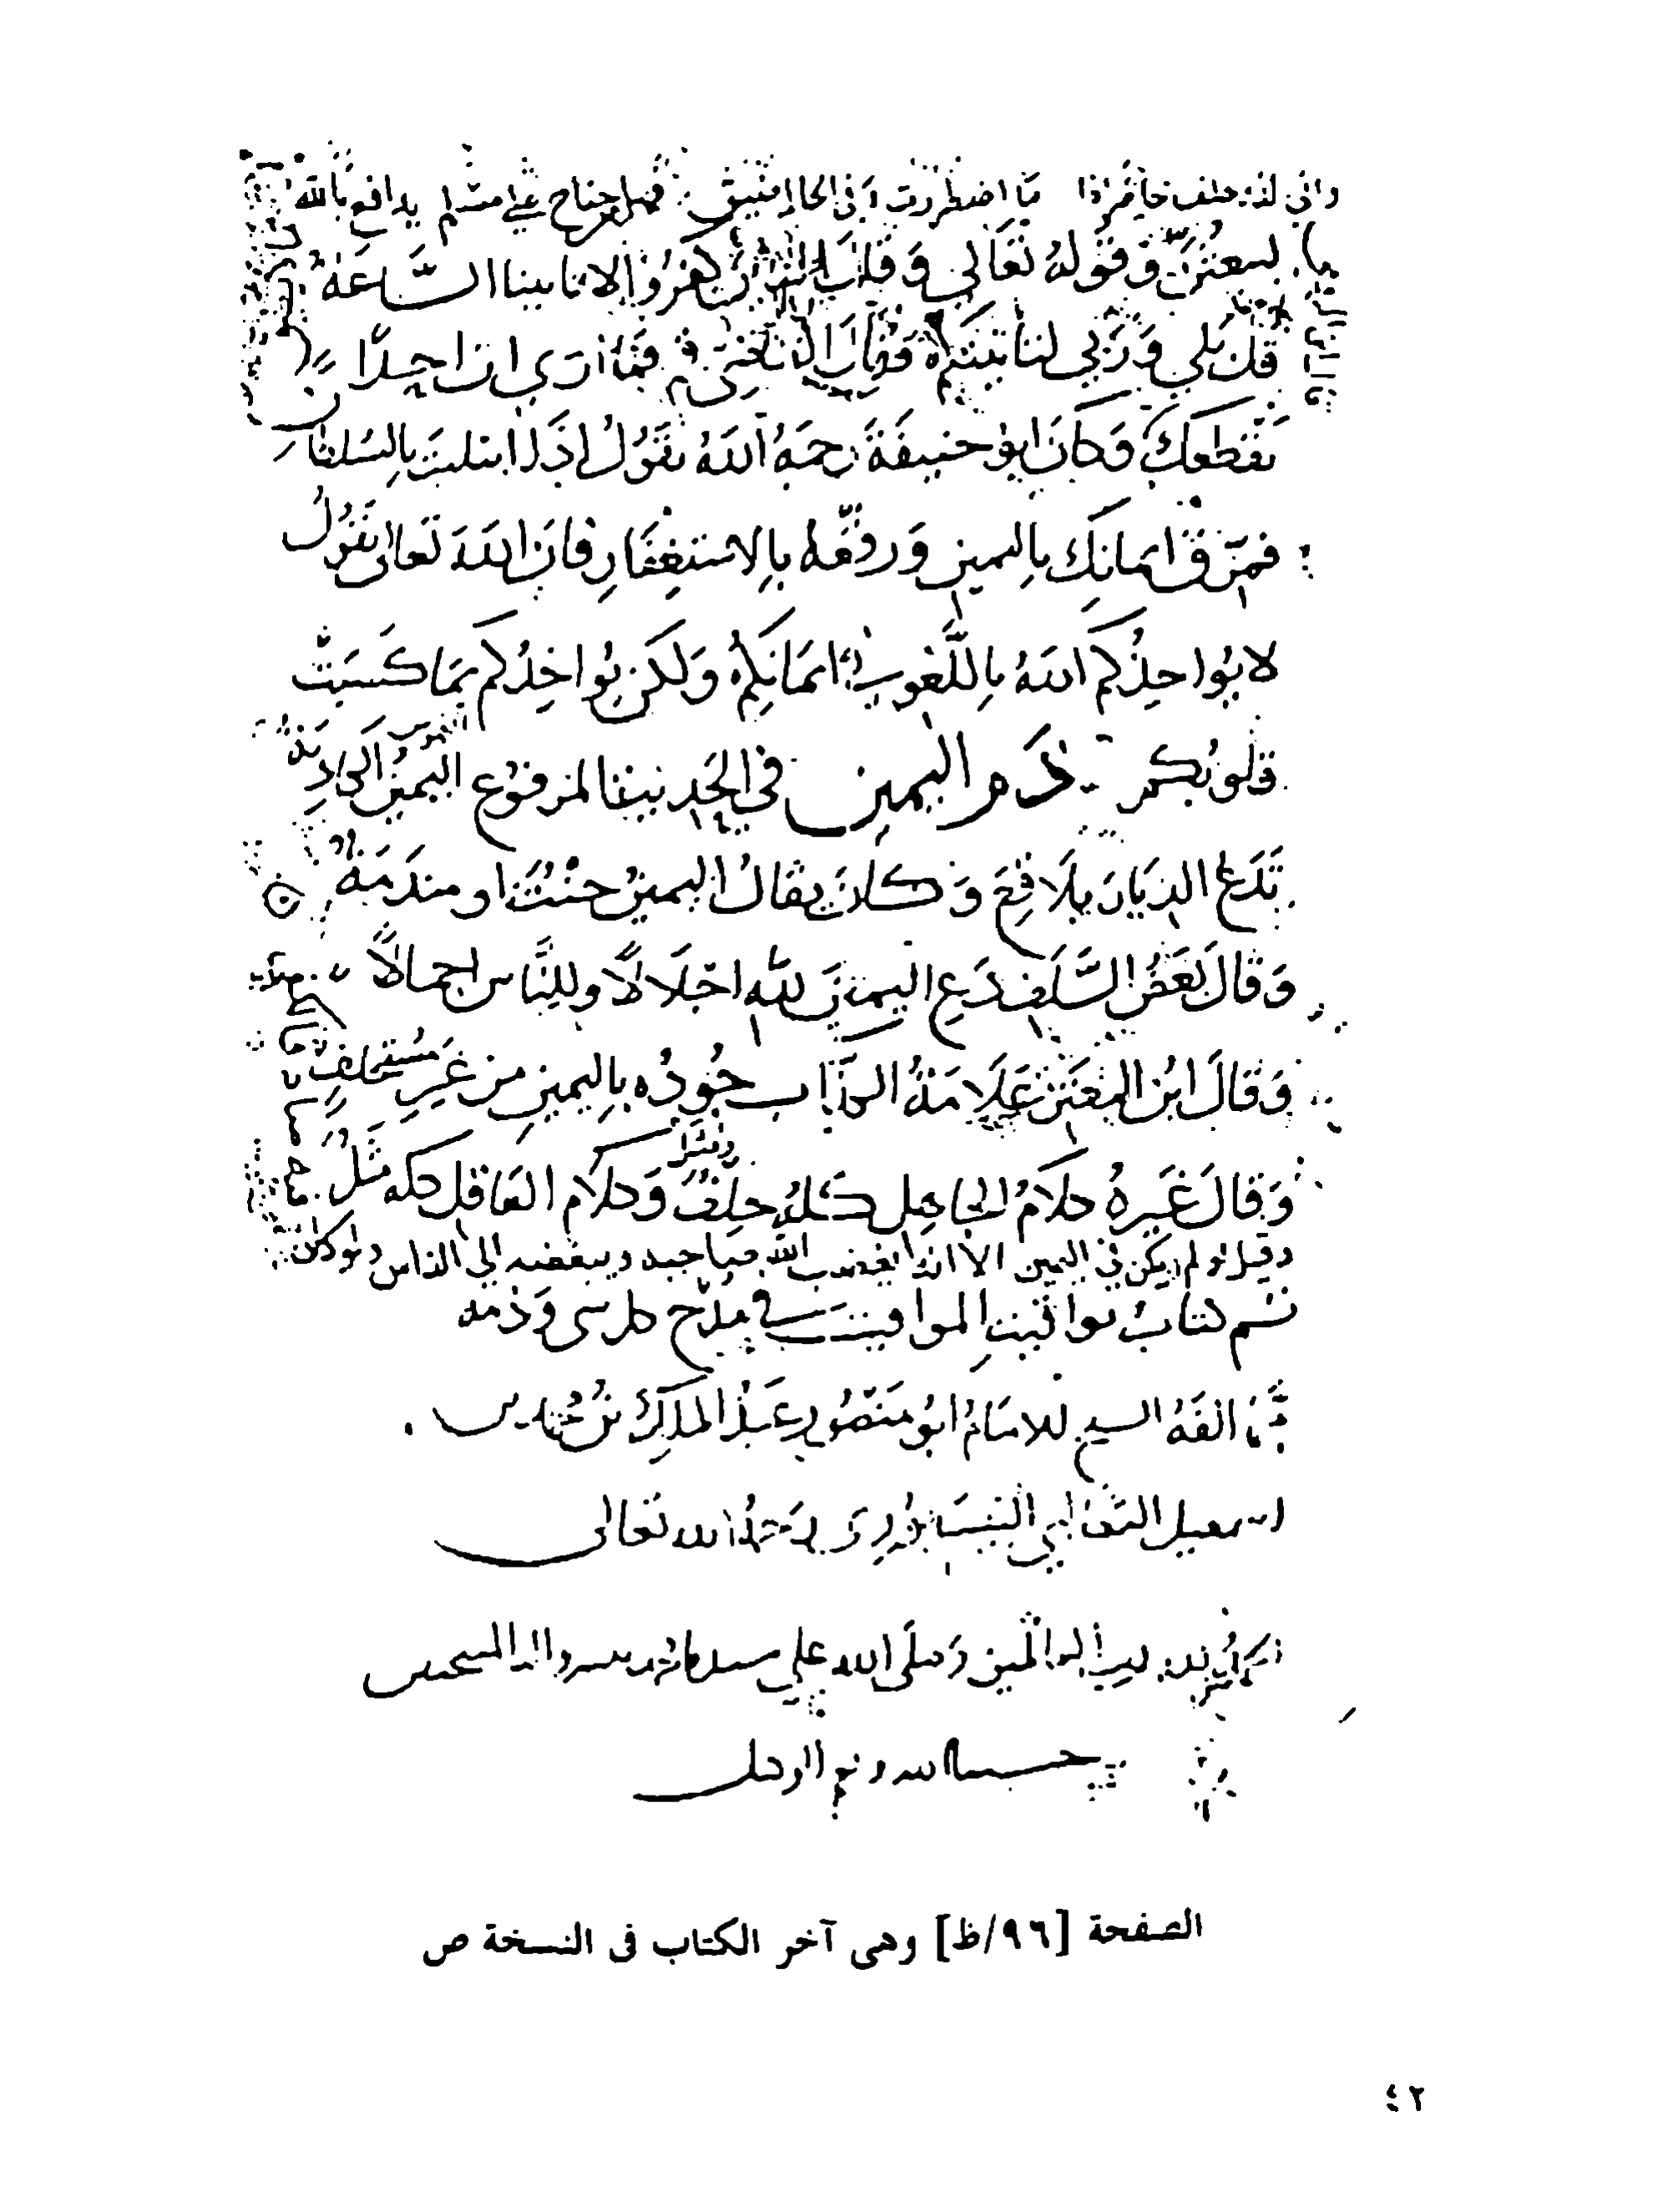 واني لذو حلف حاضر اذا ما اضطررت وفي الحال ضيق فهل جناح على مسلم يدافع بالله
ليبعثنّ وقوله تعالى وقال الذين كفروا لا تاتينا الساعة
قل بلى وربي لتاتينكم وقال فما ارى ان احدًا
يقطعك وكان ابو حنيفة رحمه الله يقول اذا ابتليت بالسلطان
فمزّق ايمانك باليمين ورقّعه بالاستغفار فان الله تعالى يقول
لا يواخذكم الله باللّغو في ايمانكم ولكن يواخذكم بما كسبت
قلوبكم ذم اليمين في الحديث المرفوع اليمين الكاذبة
تدع الديار بلاقع وكان يقال اليمين حنث او مندمة
وقال بعض السّلف دع اليمين لله اجلالًا وللنّاس اجمالًا
وقال ابن المعتز علامة الكذّاب جوده باليمين من غير مستحلف
وقال غيره كلام الجاهل كله حلف وكلام العاقل كله مثل
وقيل لو لم يكن في اليمين الا انه يغضب الله صاحبه ويبغضه الى الناس
تم كتاب يواقيت المواقيت في مدح كل شي وذمه
مما الفه الشيخ الامام ابو منصور عبد الملك بن محمد بن
اسمعيل الثعالبي النيسابوري رحمه الله تعالى
رب العالمين وصلى الله على سيدنا محمد
حسبنا الله ونعم الوكيل
الصفحة [٩٦/ظ] وهى آخر الكتاب فى النسخة ص
٤٢